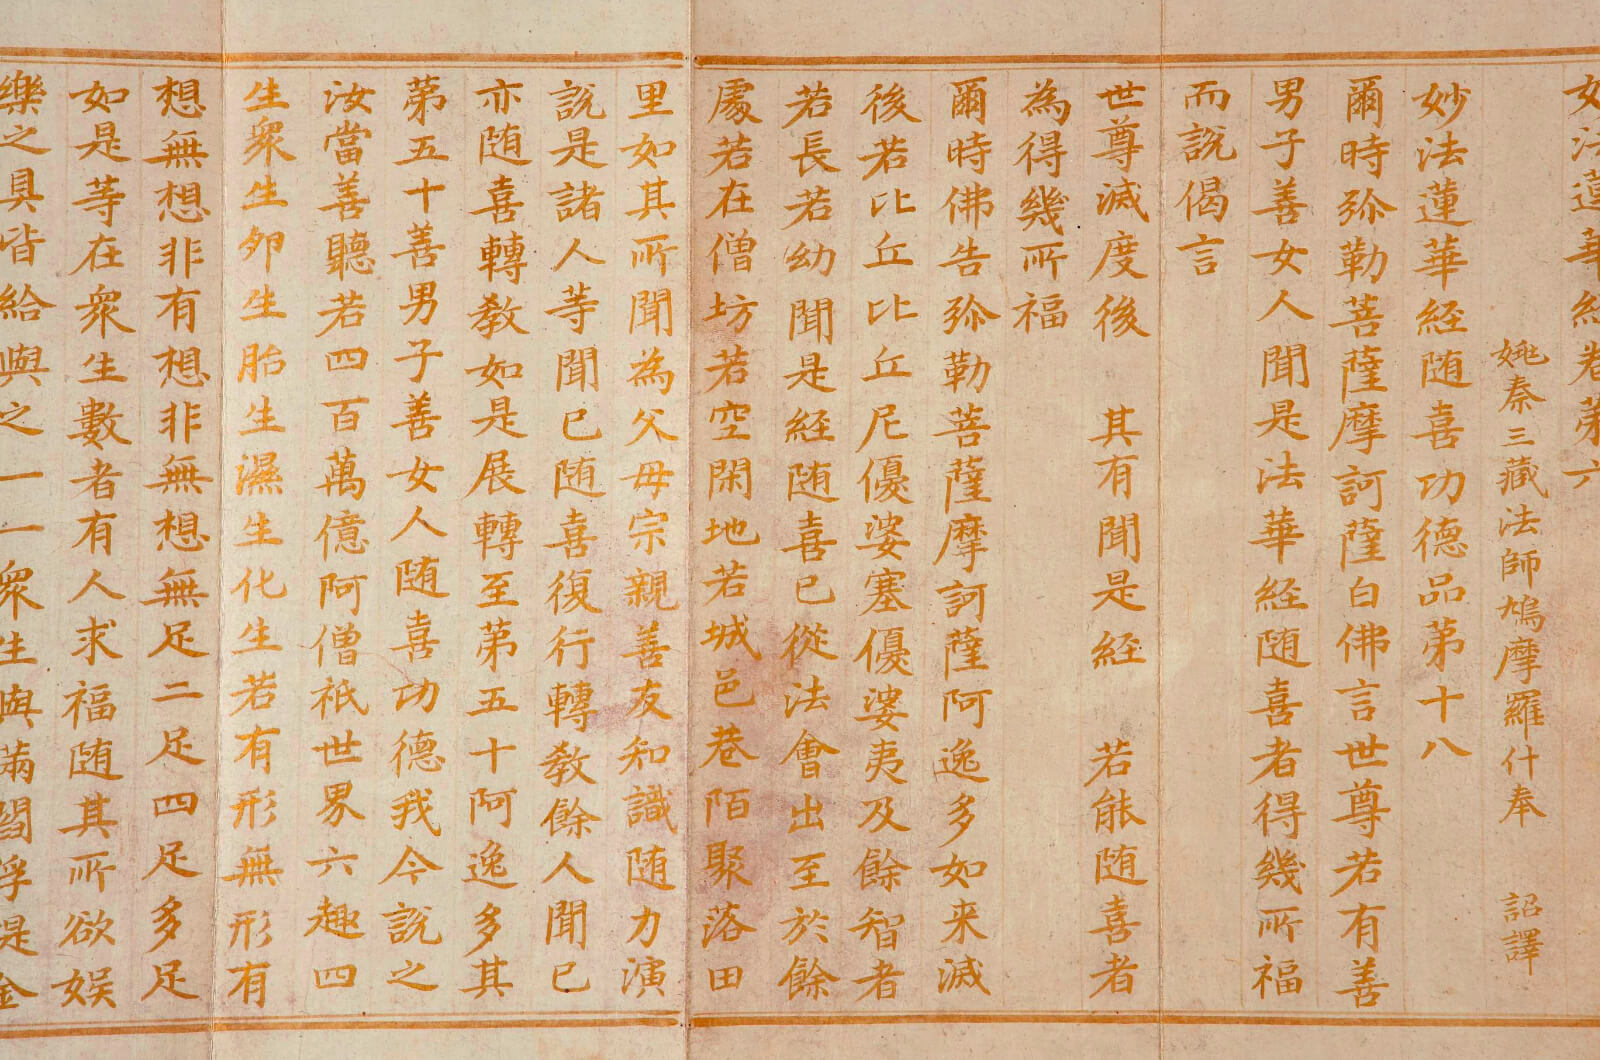 妙法蓮華経卷第六
姚秦三藏法師鳩摩羅什奉　詔譯
妙法蓮華経随喜功德品第十八
爾時弥勒菩薩摩訶薩白佛言世尊若有善
男子善女人聞是法華経随喜者得幾所福
而說偈言
世尊滅度後　其有聞是経　若能随喜者
為得幾所福
爾時佛告弥勒菩薩摩訶薩阿逸多如来滅
後若比丘比丘尼優婆塞優婆夷及餘智者
若長若幼聞是経随喜已從法會出至於餘
處若在僧坊若空閑地若城邑巷陌聚落田
里如其所聞為父母宗親善友知識随力演
說是諸人等聞已随喜復行轉教餘人聞已
亦随喜轉教如是展轉至第五十阿逸多其
第五十善男子善女人随喜功德我今說之
汝當善聽若四百萬億阿僧祇世界六趣四
生衆生卵生胎生濕生化生若有形無形有
想無想非有想非無想無足二足四足多足
如是等在衆生數者有人求福随其所欲娱
樂之具皆給與之一一衆生與滿閻浮提金